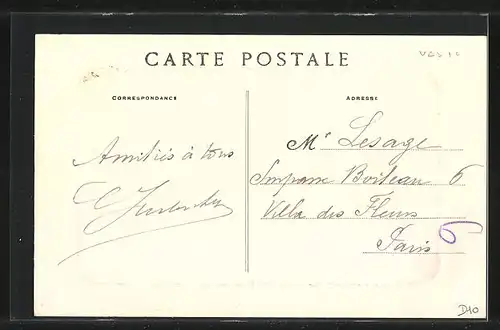 CARTE POSTALE
CORRESPONDANCE
ADRESSE
Amitiés à tous
Mr Lesage
Impasse Boileau 6
Villa des Fleurs
Paris
6
D10